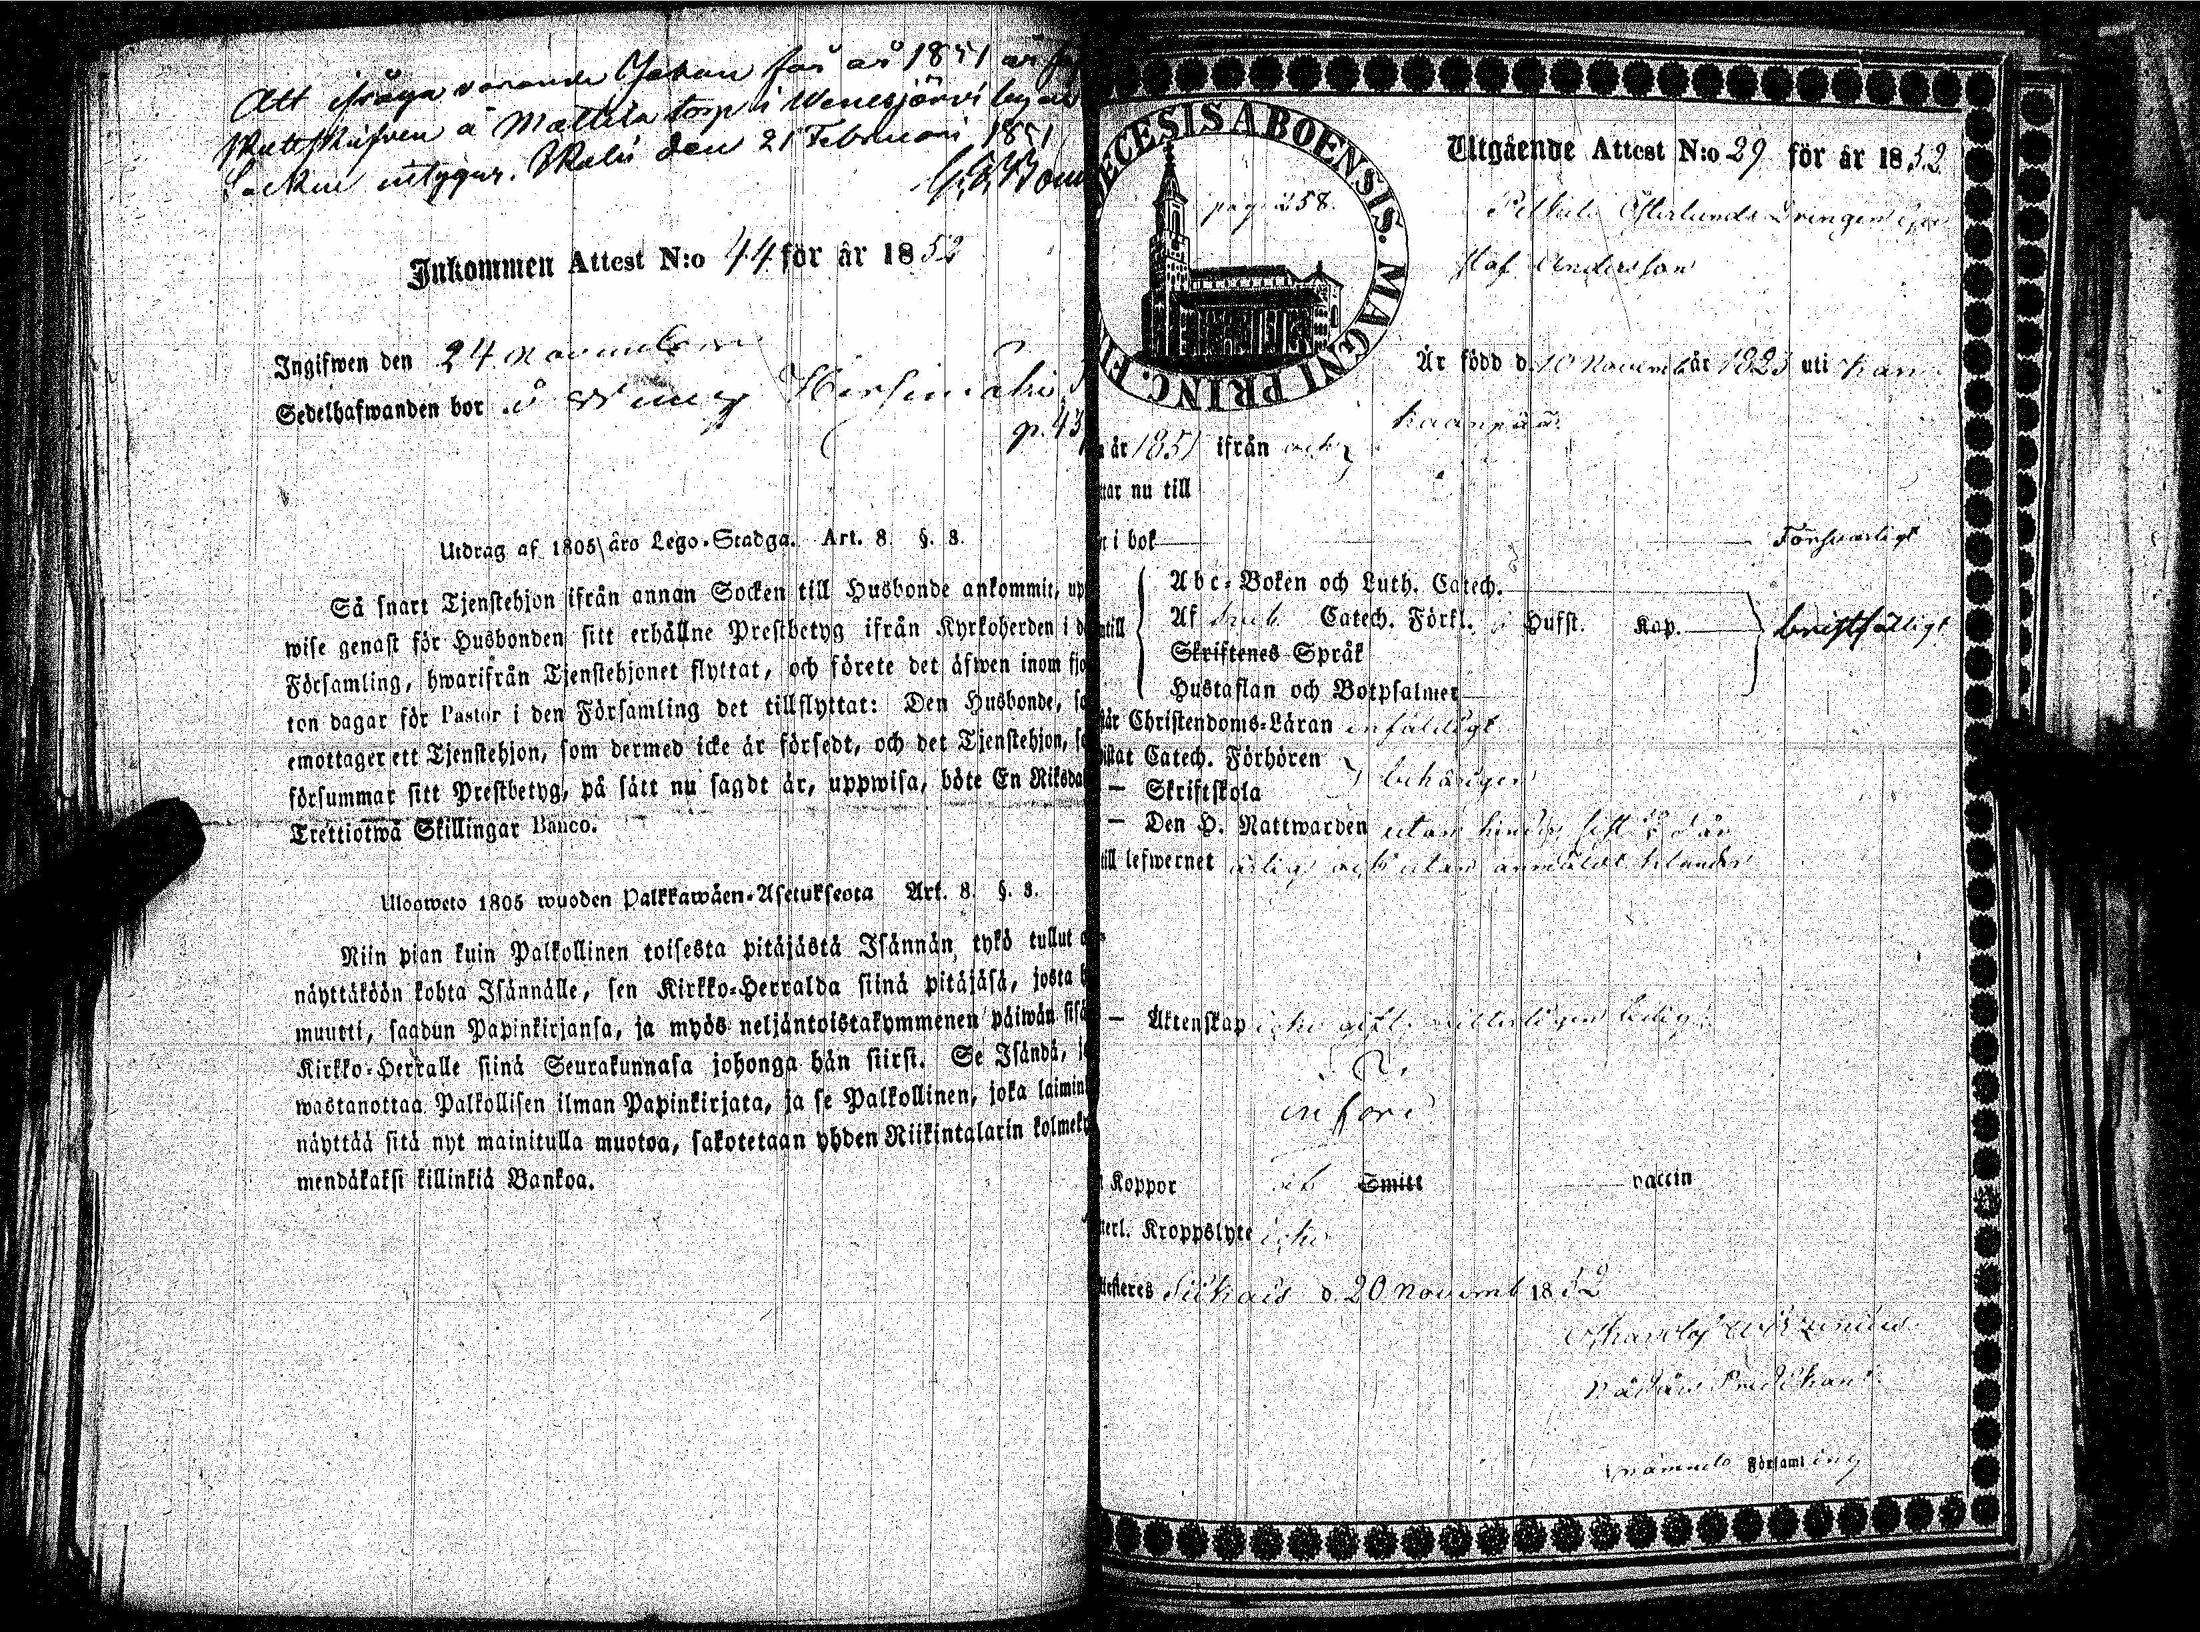 Att ifråga varande Johan för år 1851 är
Mattila torp i Wenesjärvi
Socken intygar. den 21 Februari 1851
Inkommen Attest N:o 44 för år 1852
Ingifwen den 24 November
Sedelhafwanden bor å
p. 43
Utdrag af 1805 åro Lego-Stadga. Art. 8. §. 8.
Så snart Tjenstehjon ifrån annan Socken till Husbonde ankommit, up
wise genast för Husbonden sitt erhållne Prestbetyg ifrån Kyrkoherden i d
Församling, hwarifrån Tjenstehjonet flyttat, och förete det äfwen inom fjo
ton dagar för Pastor i den Församling det tillflyttat: Den Husbonde, so
emottager ett Tjenstehjon, som dermed icke är försedt, och det Tjenstehjon, so
försummar sitt Prestbetyg, på sätt nu sagdt är, uppwisa, böte En Riksda
Trettiotwå Skillingar Banco.
Ulosweto 1805 wuoden Palkkawäen-Asetuksesta Art. 8. §. 8.
Niin pian kuin Palkollinen toisesta pitäjästä Isännän tykö tullut o
näyttäköön kohta Isännälle, sen Kirkko-Herralda siinä pitäjäsä, josta h
muutti, saadun Papinkirjansa, ja myös neljäntoistakymmenen päiwän sisä
Kirkko-Herralle siinä Seurakunnasa johonga hän siirsi. Se Isändä, jo
wastanottaa Palkollisen ilman Papinkirjata, ja se Palkollinen, joka laimin
näyttää sitä nyt mainitulla muotoa, sakotetaan yhden Riikintalarin kolmeky
mendäkaksi killinkiä Bankoa.
ECESIS ABOENSIS. MAGNI PRINC. FI
pag. 258.
Utgående Attest N:o 29 för år 1852
Österlunds Drengen Gu
staf Andersson
Är född d. 10 Novemb år 1823 uti Kan
kaanpää
år 1851 ifrån och
ar nu till
t i bok Försvarligt
Abc-Boken och Luth. Catech.
Af Catech. Förkl. Hufst. Kap. bristfälligt
Skriftenes Språk
Hustaflan och Botpsalmer
år Christendoms-Läran enfaldigt
istat Catech. Förhören
behörigen
— Skriftskola
— Den H. Nattwarden utan hinder
till lefwernet ärlig och utan anmäldt
— Äktenskap icke gift, witterligen ledig
införd
Koppor Smitt vaccin
terl. Kroppslyte icke
ttesteres Siikais d. 20 Novemb 1852
Predikant
Församling